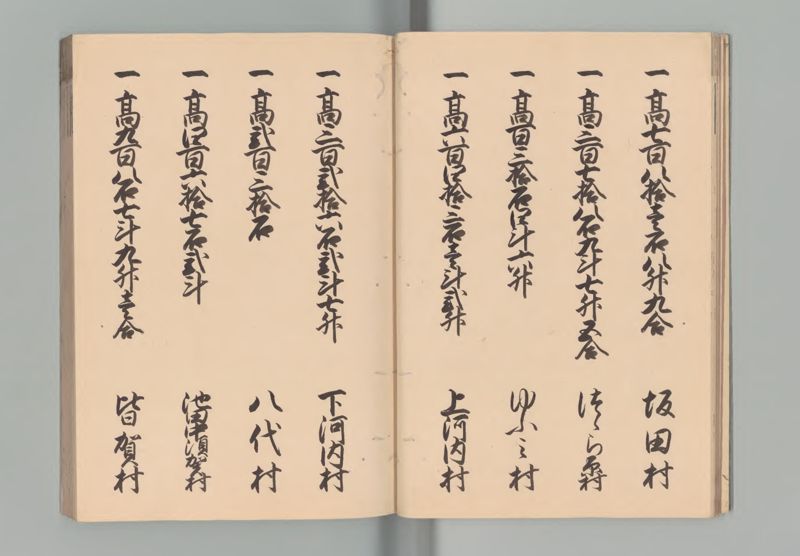 一 高七百八拾壱石八升九合 坂田村
一 高三百七拾八石九斗七升五合 つゝら原村
一 高百三拾石四斗六升 ゆふミ村
一 高六百四拾三石壱斗弐升 上河内村
一 高三百弐拾六石弐斗七升 下河内村
一 高弐百三拾石 八代村
一 高四百六拾七石弐斗 池津須賀村
一 高九百八石七斗九升壱合 皆賀村